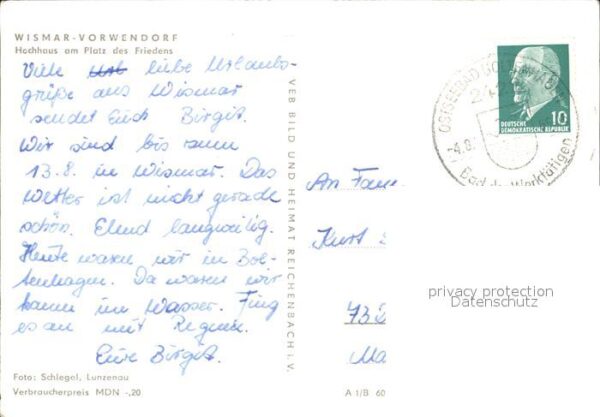 WISMAR-VORWENDORF
Hochhaus am Platz des Friedens
Viele liebe Urlaubs-
grüße aus Wismar
sendet Euch Birgit.
Wir sind bis zum
13.8. in Wismar. Das
Wetter ist nicht gerade
schön. Elend langweilig.
Heute waren wir in Bol-
tenhagen. Da waren wir
kaum im Wasser. Fing
es an mit Regnen.
Eure Birgit.
Foto: Schlegel, Lunzenau
Verbraucherpreis MDN -,20
VEB BILD UND HEIMAT REICHENBACH i. V.
A 1/B 60
An Fam
Kurt
73
Ma
OSTSEEBAD
-4.8.
Bad der Werktätigen
DEUTSCHE
DEMOKRATISCHE REPUBLIK
10
privacy protection
Datenschutz